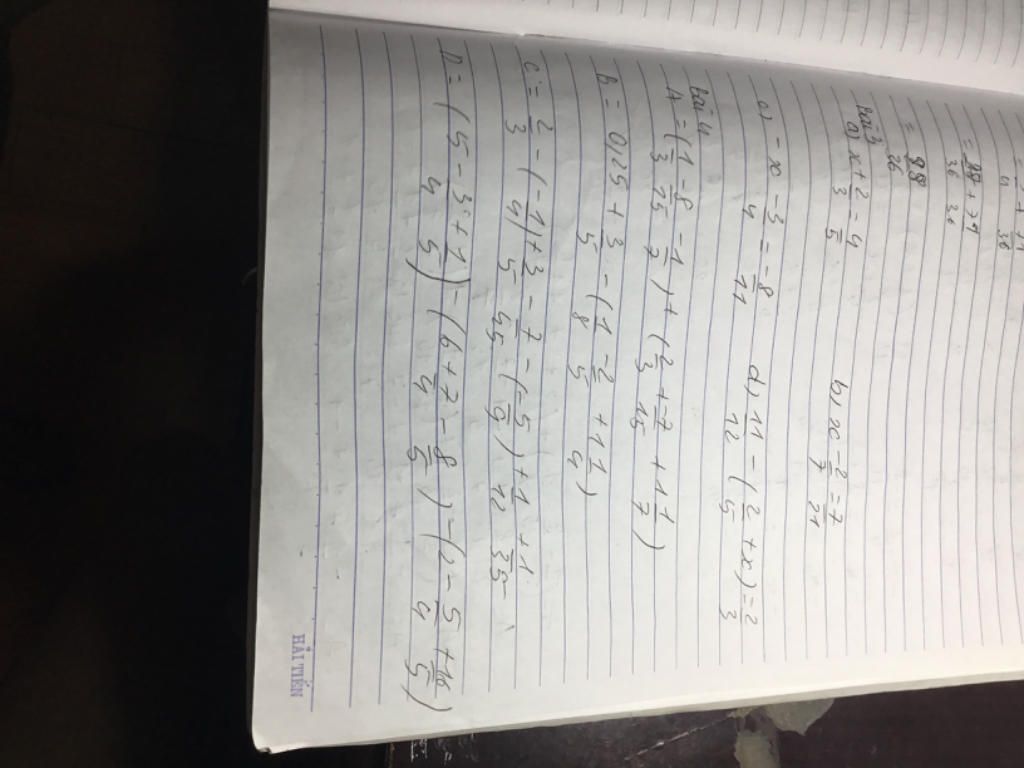 = 88/26
Bài 3
a) x + 2/3 = 4/5
b) x - 2/7 = 7/21
c) - x - 3/4 = -8/11
d) 11/12 - (2/5 + x) = 2/3
Bài 4
A = (1/3 - 8/15 - 1/7) + (2/3 + 7/15 + 1 1/7)
B = 0,25 + 3/5 - (1/8 - 2/5 + 1 1/4)
C = 2/3 - (-1/4) + 3/5 - 7/45 - (-5/9) + 1/12 + 1/35
D = (5 - 3/4 + 1/5) - (6 + 7/4 - 8/5) - (2 - 5/4 + 16/5)
HẢI TIẾN